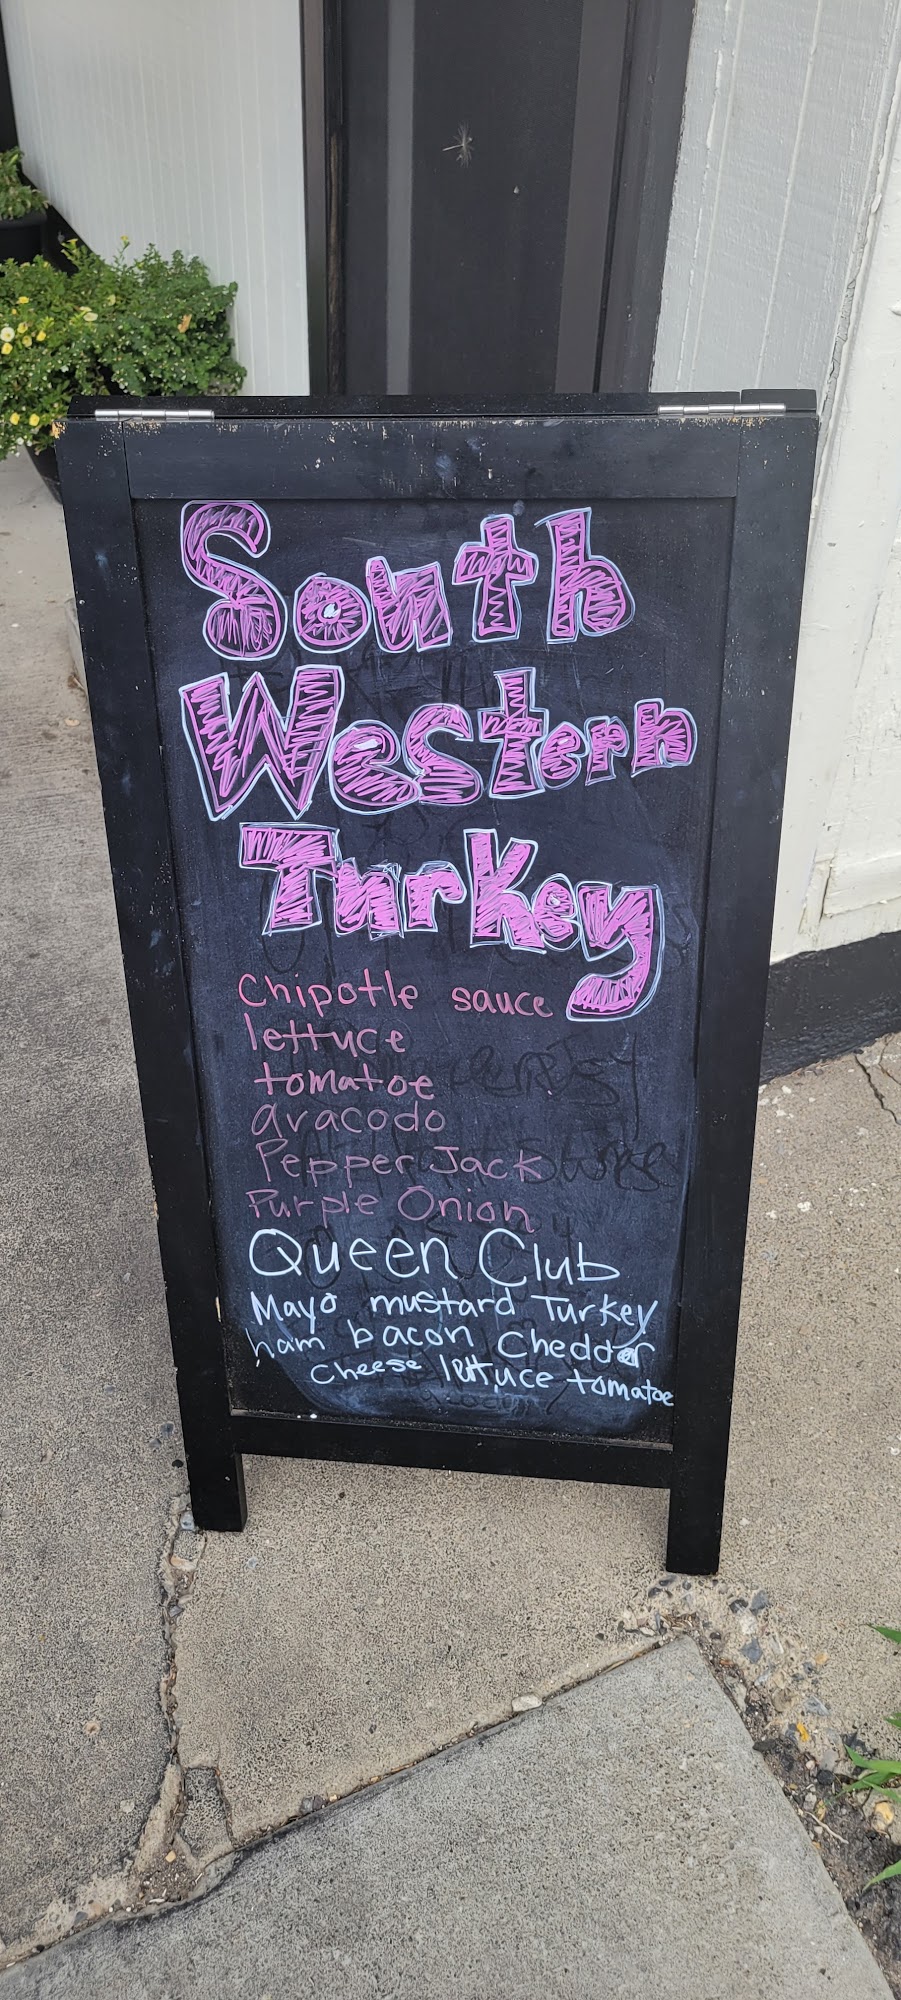 South
Western
Turkey
Chipotle sauce
lettuce
tomatoe
avacodo
Pepper Jack
Purple Onion
Queen Club
Mayo mustard Turkey
ham bacon Cheddar
Cheese lettuce tomatoe